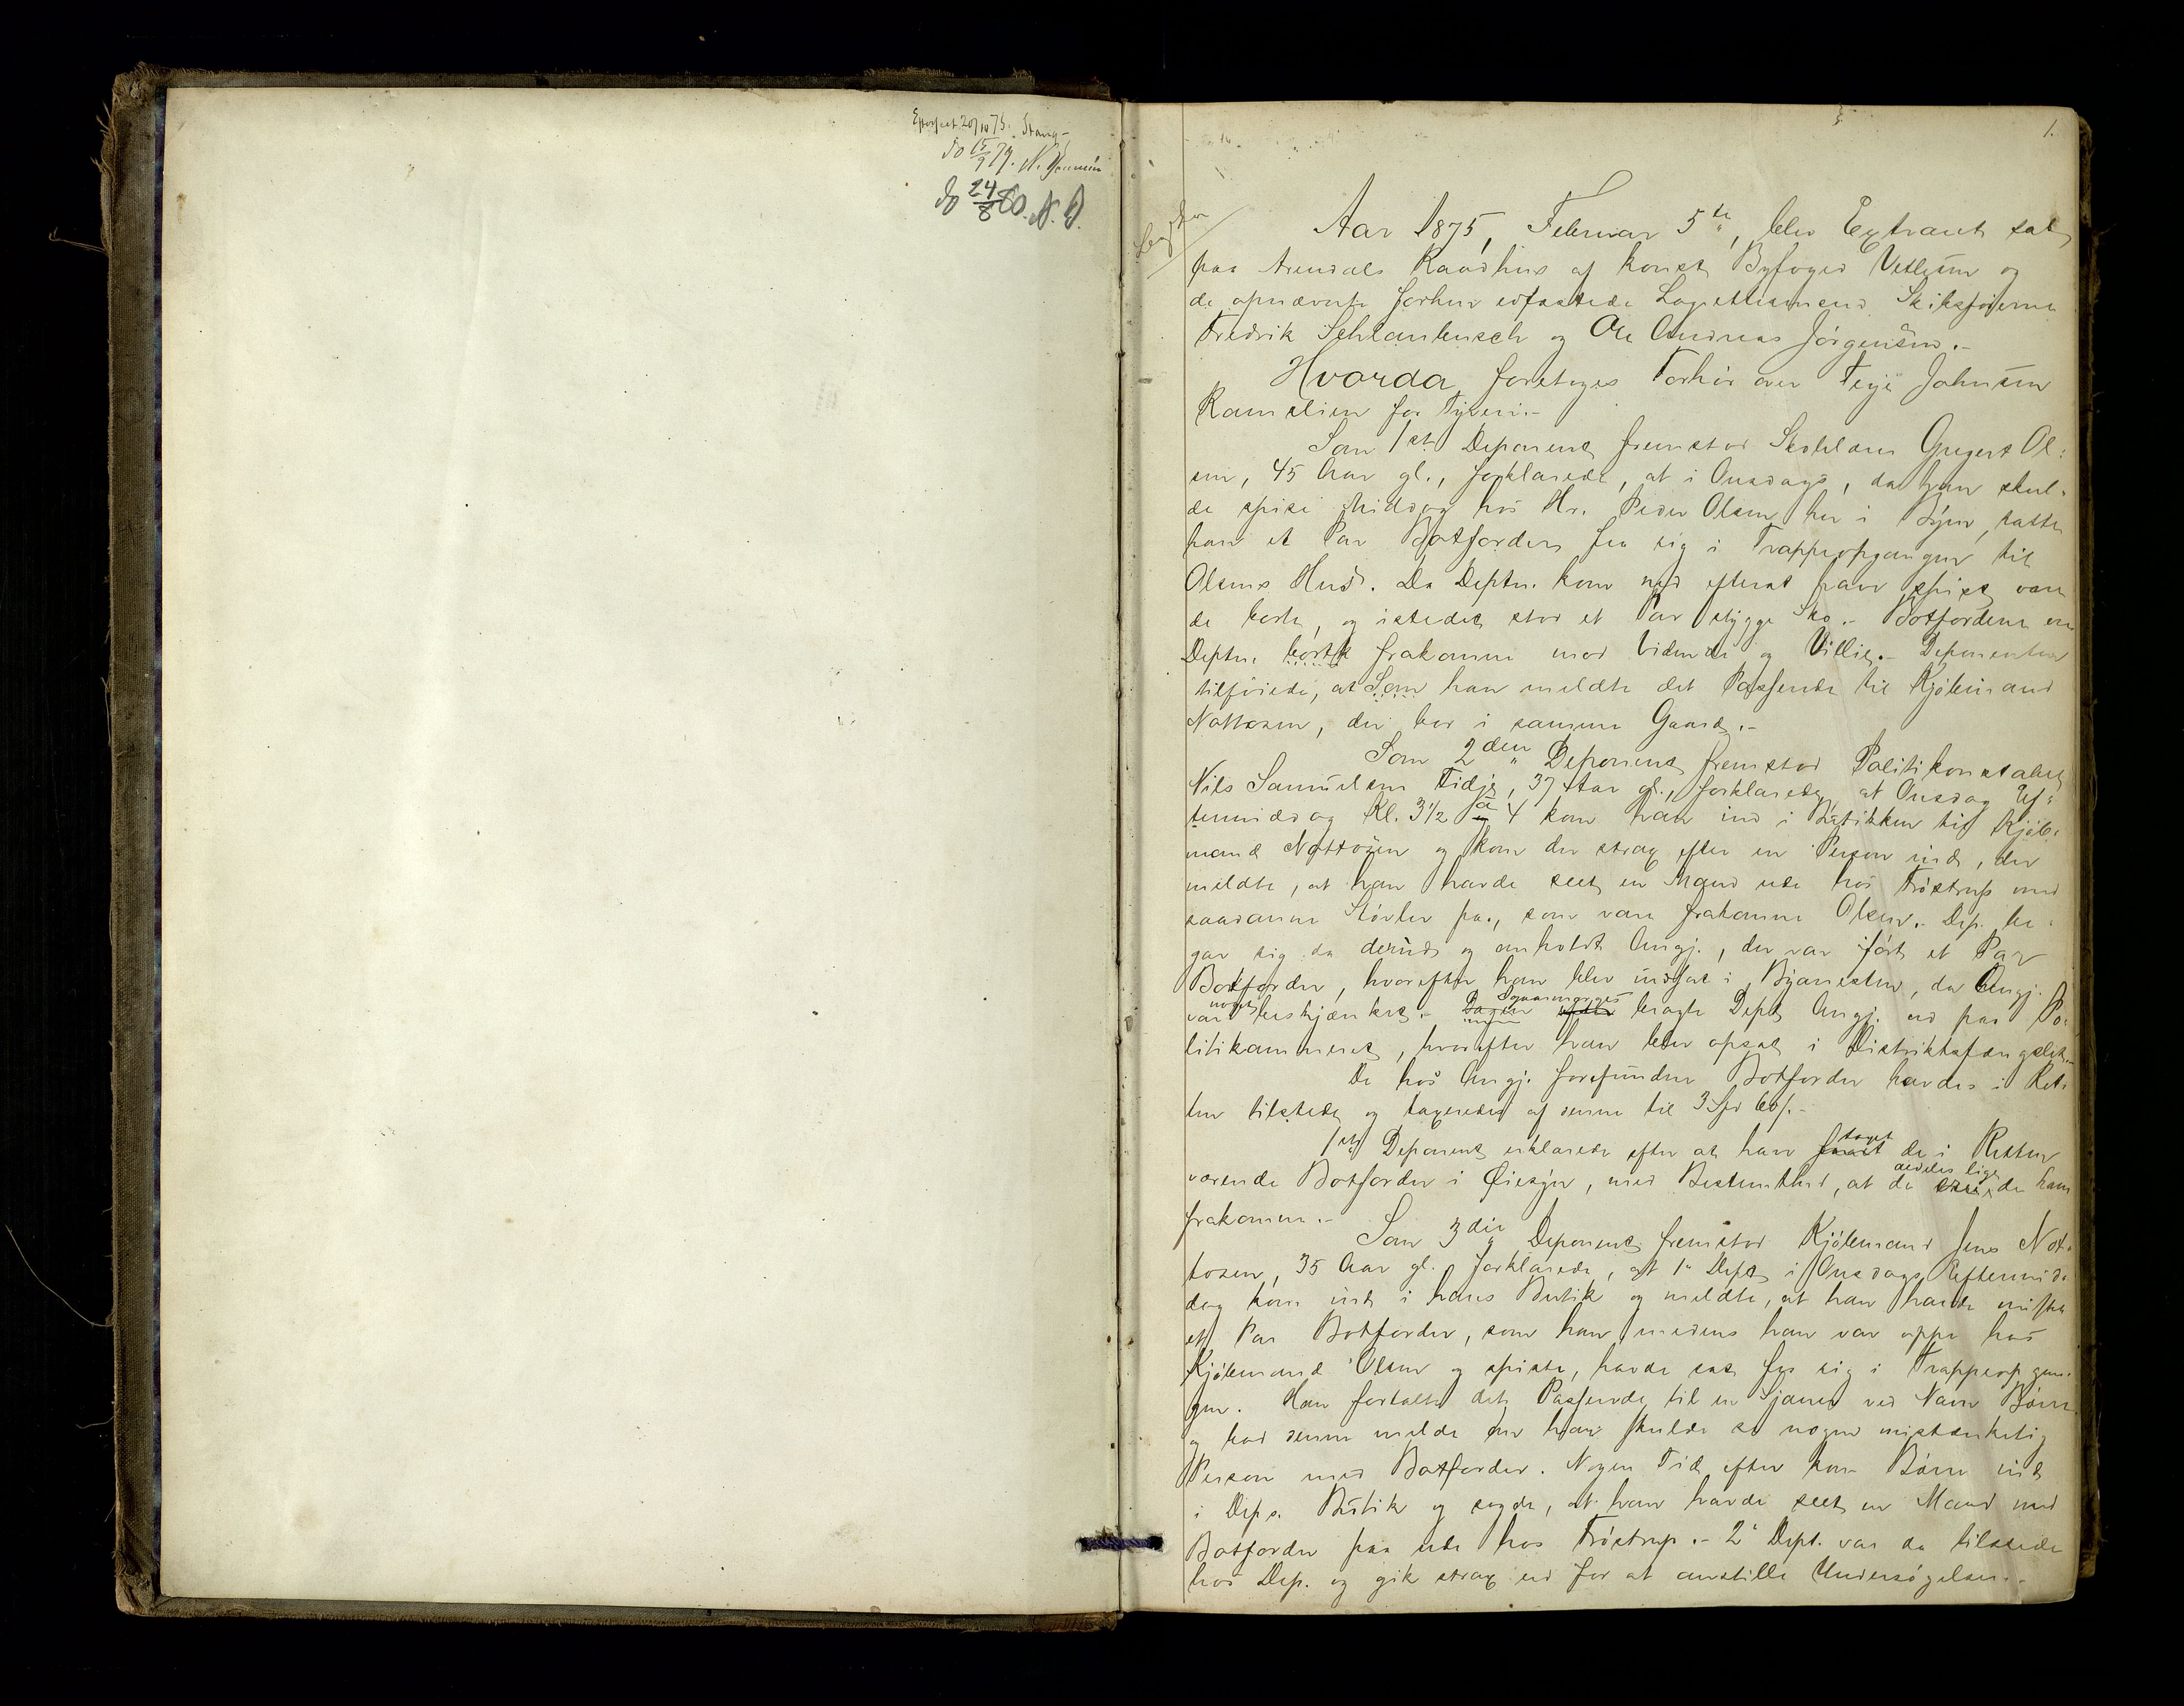 Efterseet 20/10 75. Stang
do 15/9 79. N.
do 24/8 80. N. D.
1.
Aar 1875, Februar 5te, blev Extraret sat
paa Arendals Raadhus af konst. Byfoged Vetlesen og
de opnævnte forhen edfæstede Lagrettesmænd Skibsförerne
Fredrik Schlanbusch og Ole Andreas Jörgensen.-
Hvorda foretoges Forhör over Terje Johnsen
Ramslien for Tyveri.-
Som 1ste Deponent fremstod Gregert Ol-
sen, 45 Aar gl., forklarede, at i Onsdags, da han skul-
de spise Middag hos Hr. Peder Olsen her i Byen, satte
han et Par Botforder fra sig i Trappeopgangen til
Olsens Hus. Da Deptn. kom ned efterat have spist, vare
de borte, og istedet stod et Par stygge Sko.- Botforderne ere
Deptn. bortk frakomne mod Vidende og Villie.- Deponenten
tilföiede, at Som han meldte det Passerede til Kjöbmand
Nottosen, der bor i samme Gaard.-
Som 2den Deponent fremstod Politikonstabel
Nils Samuelsen Tidje, 37 Aar gl., forklarede, at Onsdag Ef-
termiddag Kl. 3½ à 4 kom han ind i Butikken til Kjöb-
mand Nottosen og kom der strax efter en Person ind, der
meldte, at han havde seet en Mand ude hos Tröstrup med
saadanne Stövler paa, som vare frakomne Olsen.- Dep. be-
gav sig da derud og anholdt Angj., der var iført et Par
Botforder, hvorefter han blev indsat i Byarresten, da Angj.
var noget beskjænket.- Dagen efter Igaarmorges bragte Dept. Angj. ned paa Po-
litikammeret, hvorefter han blev opsat i Distriktsfængslet.-
De hos Angj. forefundne Botforder havdes i Ret-
ten tilstede og taxeredes af denne til 3 Spd 60 s.-
1ste Deponent erklærede efter at have taget de i Retten
værende Botforder i Öiesyn, med Bestemthed, at de ere aldeles lige de ham
frakomne.-
Som 3die Deponent fremstod Kjöbmand Jens Not-
tosen, 35 Aar gl. forklarede, at 1ste Dept. i Onsdags Eftermid-
dag kom ind i hans Butik og meldte, at han havde mistet
et Par Botforder, som han, medens han var oppe hos
Kjöbmand Olsen og spiste, havde sat fra sig i Trappeopgan-
gen. Han fortalte det Passerede til en Sjauer ved Navn Börre
og bad denne melde om han skulde se nogen mistænkelig
Person med Botforder. Nogen Tid efter kom Börre ind
i Deps. Butik og sagde, at han havde seet en Mand med
Botforder paa ude hos Tröstrup.- 2den Dept. var da tilstede
hos Dep. og gik strax ud for at anstille Undersögelser.-